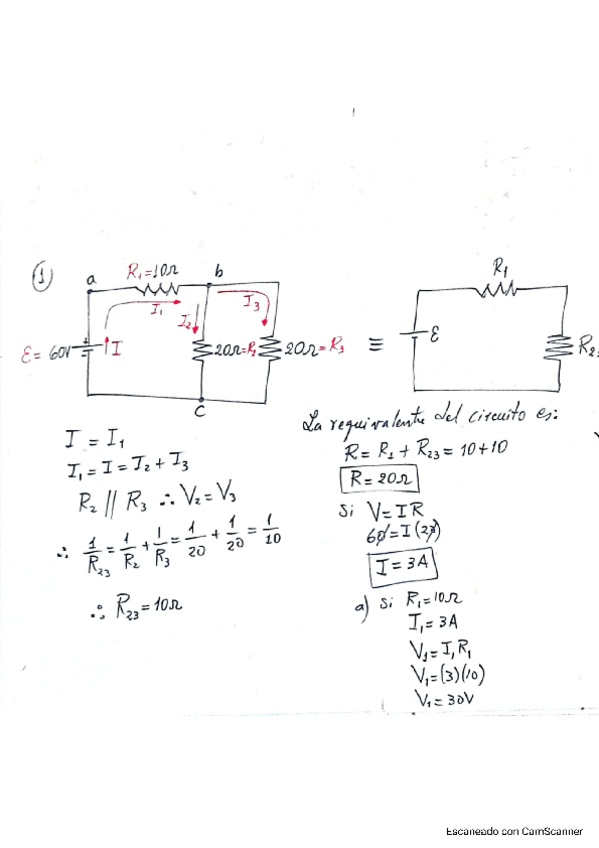 1
a
R₁=10Ω
b
I₁
I₂
I₃
ε= 60V
I
20Ω=R₂
20Ω=R₃
c
≡
R₁
ε
R₂
I = I₁
I₁= I = I₂ + I₃
R₂ // R₃ ∴ V₂=V₃
∴ 1/R₂₃ = 1/R₂ + 1/R₃ = 1/20 + 1/20 = 1/10
∴ R₂₃=10Ω
La requivalente del circuito es:
R= R₁ + R₂₃ = 10+10
R= 20Ω
Si V= IR
60=I(20)
I= 3A
a) Si R₁=10Ω
I₁= 3A
V₁= I₁R₁
V₁=(3)(10)
V₁= 30V
Escaneado con CamScanner